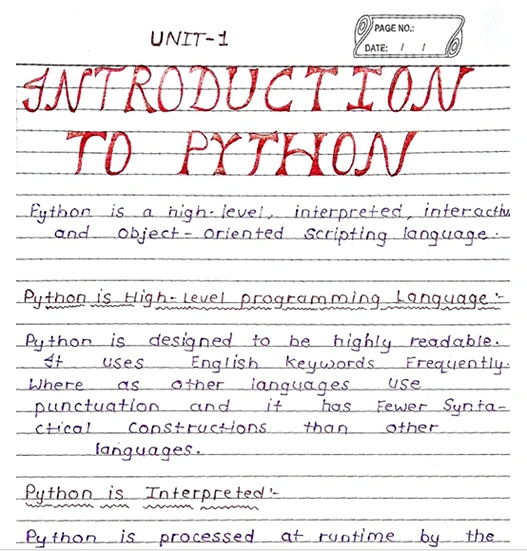 UNIT-1
PAGE NO.:
DATE: / /
INTRODUCTION
TO PYTHON
Python is a high-level, interpreted, interactiv
and object-oriented scripting language.
Python is High-level programming Language:-
Python is designed to be highly readable.
It uses English keywords Frequently.
Where as other languages use
punctuation and it has Fewer Synta-
ctical Constructions than other
languages.
Python is Interpreted:-
Python is processed at runtime by the